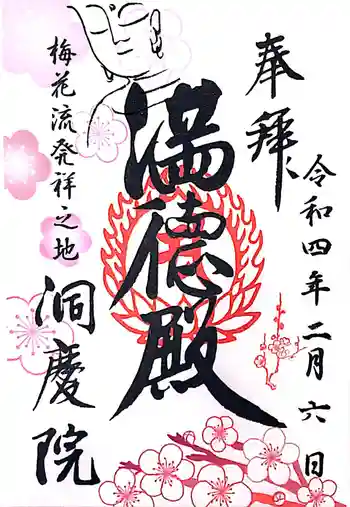 奉拜
令和四年二月六日
満徳殿
梅花流発祥之地
洞慶院